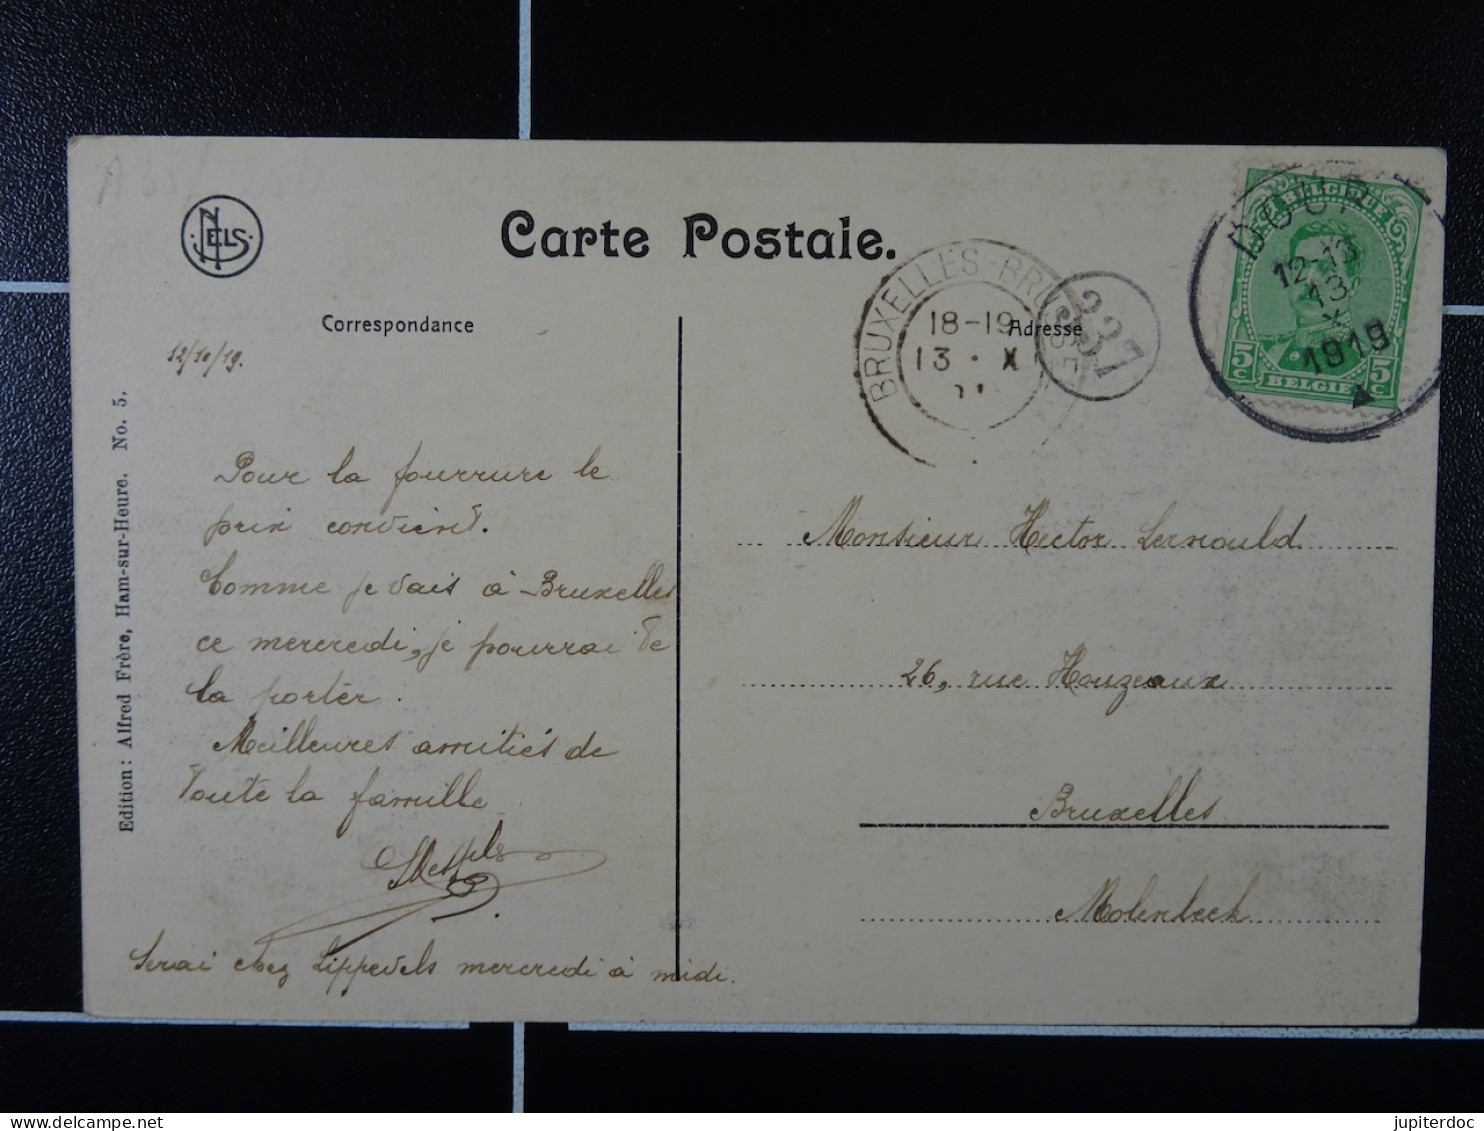 NELS
Carte Postale.
Correspondance
Adresse
12/10/19.
Edition: Alfred Frère, Ham-sur-Heure. No. 5.
BRUXELLES-BRUSSEL
18-19
13 · X
337
DOUR
12-13
13
X
1919
BELGIQUE
5c 5c
BELGIE
Pour la fourrure le
prix convient.
Comme je vais à Bruxelles
ce mercredi, je pourrai te
la porter.
Meilleures amitiés de
toute la famille
Serai chez Lippevels mercredi à midi.
Monsieur Hector Lernould
26, rue Houzeaux
Bruxelles
Molenbeek
jupiterdoc
delcampe.net